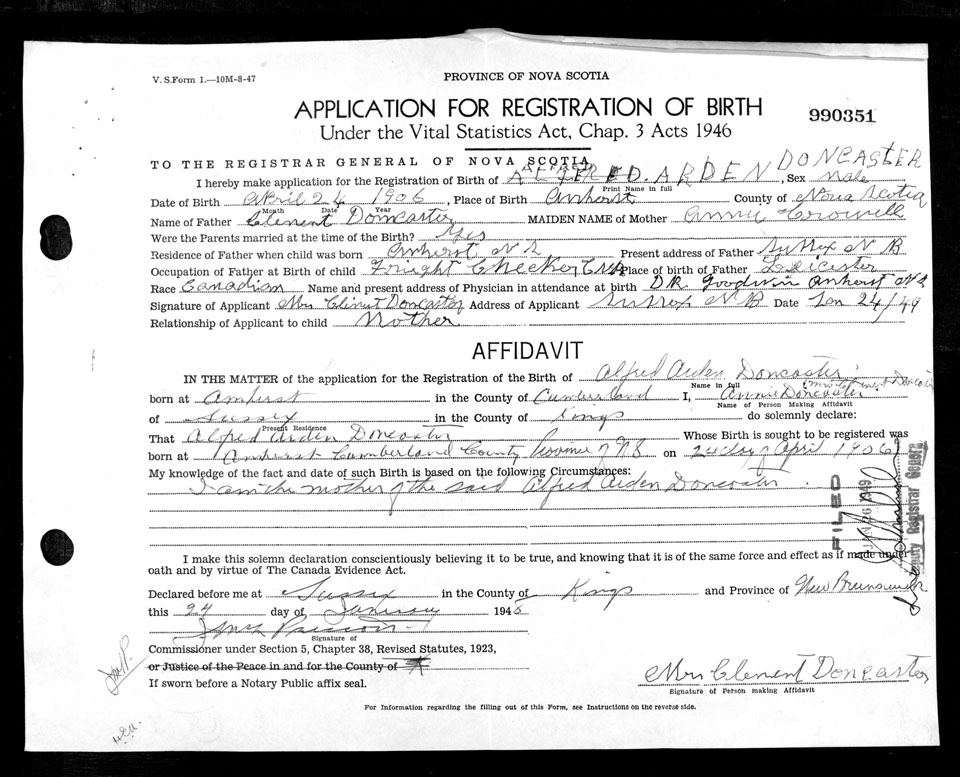 V. S. Form 1.—10M-8-47
PROVINCE OF NOVA SCOTIA
APPLICATION FOR REGISTRATION OF BIRTH
990351
Under the Vital Statistics Act, Chap. 3 Acts 1946
TO THE REGISTRAR GENERAL OF NOVA SCOTIA
I hereby make application for the Registration of Birth of ALFRED ARDEN DONCASTER, Sex Male
Print Name in full
Date of Birth April 24 1906, Place of Birth Amherst County of Nova Scotia
Month Date Year
Name of Father Clement Doncaster MAIDEN NAME of Mother Annie Crowell
Were the Parents married at the time of the Birth? Yes
Residence of Father when child was born Amherst N S Present address of Father Sussex N B
Occupation of Father at Birth of child Frieght Checker CNR Place of birth of Father Leicester
Race Canadian Name and present address of Physician in attendance at birth DR. Goodwin Amherst N S
Signature of Applicant Mrs Clement Doncaster Address of Applicant Sussex N B Date Jan 24/49
Relationship of Applicant to child Mother
AFFIDAVIT
IN THE MATTER of the application for the Registration of the Birth of Alfred Arden Doncaster
Name in full
(Mrs Clement Doncaster
born at Amherst in the County of Cumberland I, Annie Doncaster
Name of Person Making Affidavit
of Sussex in the County of Kings do solemnly declare:
Present Residence
That Alfred Arden Doncaster Whose Birth is sought to be registered was
born at Amherst Cumberland County Province of N S on 24 day of April 1906
My knowledge of the fact and date of such Birth is based on the following Circumstances:
I am the mother of the said Alfred Arden Doncaster.
FILED
JAN 26 1949
Deputy Registrar General
I make this solemn declaration conscientiously believing it to be true, and knowing that it is of the same force and effect as if made under
oath and by virtue of The Canada Evidence Act.
Declared before me at Sussex in the County of Kings and Province of New Brunswick
this 24 day of January 194
Signature of
Commissioner under Section 5, Chapter 38, Revised Statutes, 1923,
or Justice of the Peace in and for the County of
If sworn before a Notary Public affix seal.
Mrs Clement Doncaster
Signature of Person making Affidavit
For Information regarding the filling out of this Form, see Instructions on the reverse side.